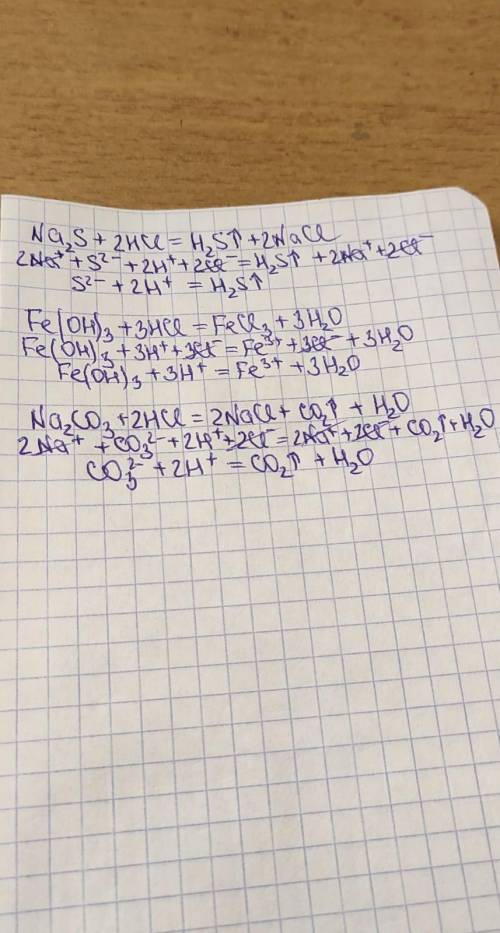 Na₂S + 2HCl = H₂S↑ + 2NaCl
2Na⁺ + S²⁻ + 2H⁺ + 2Cl⁻ = H₂S↑ + 2Na⁺ + 2Cl⁻
S²⁻ + 2H⁺ = H₂S↑
Fe(OH)₃ + 3HCl = FeCl₃ + 3H₂O
Fe(OH)₃ + 3H⁺ + 3Cl⁻ = Fe³⁺ + 3Cl⁻ + 3H₂O
Fe(OH)₃ + 3H⁺ = Fe³⁺ + 3H₂O
Na₂CO₃ + 2HCl = 2NaCl + CO₂↑ + H₂O
2Na⁺ + CO₃²⁻ + 2H⁺ + 2Cl⁻ = 2Na⁺ + 2Cl⁻ + CO₂↑ + H₂O
CO₃²⁻ + 2H⁺ = CO₂↑ + H₂O